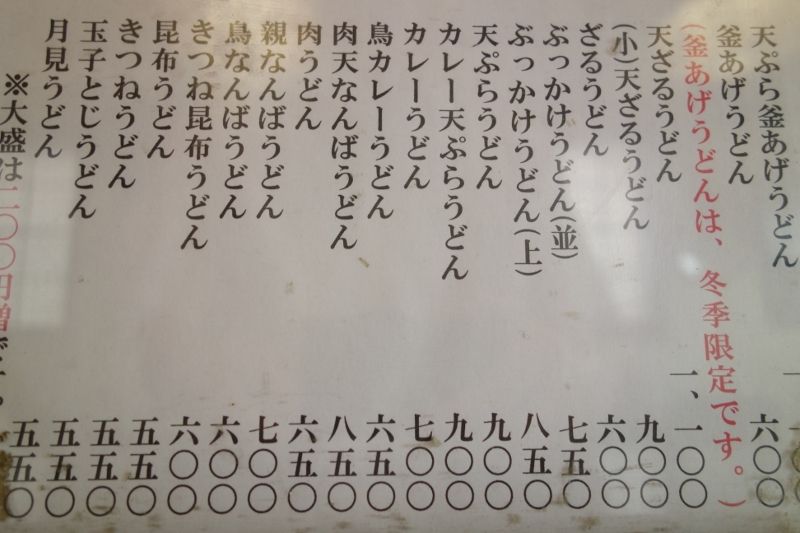 天ぷら釜あげうどん
釜あげうどん 六〇〇
(釜あげうどんは、冬季限定です。)
天ざるうどん 一、一〇〇
(小)天ざるうどん 九〇〇
ざるうどん 六〇〇
ぶっかけうどん(並) 七五〇
ぶっかけうどん(上) 八五〇
天ぷらうどん 九〇〇
カレー天ぷらうどん 九〇〇
カレーうどん 七〇〇
鳥カレーうどん 六五〇
肉天なんばうどん 八五〇
肉うどん 六五〇
親なんばうどん 七〇〇
鳥なんばうどん 六〇〇
きつね昆布うどん 六〇〇
昆布うどん 五五〇
きつねうどん 五五〇
玉子とじうどん 五五〇
月見うどん 五五〇
※大盛は二〇〇円増です。